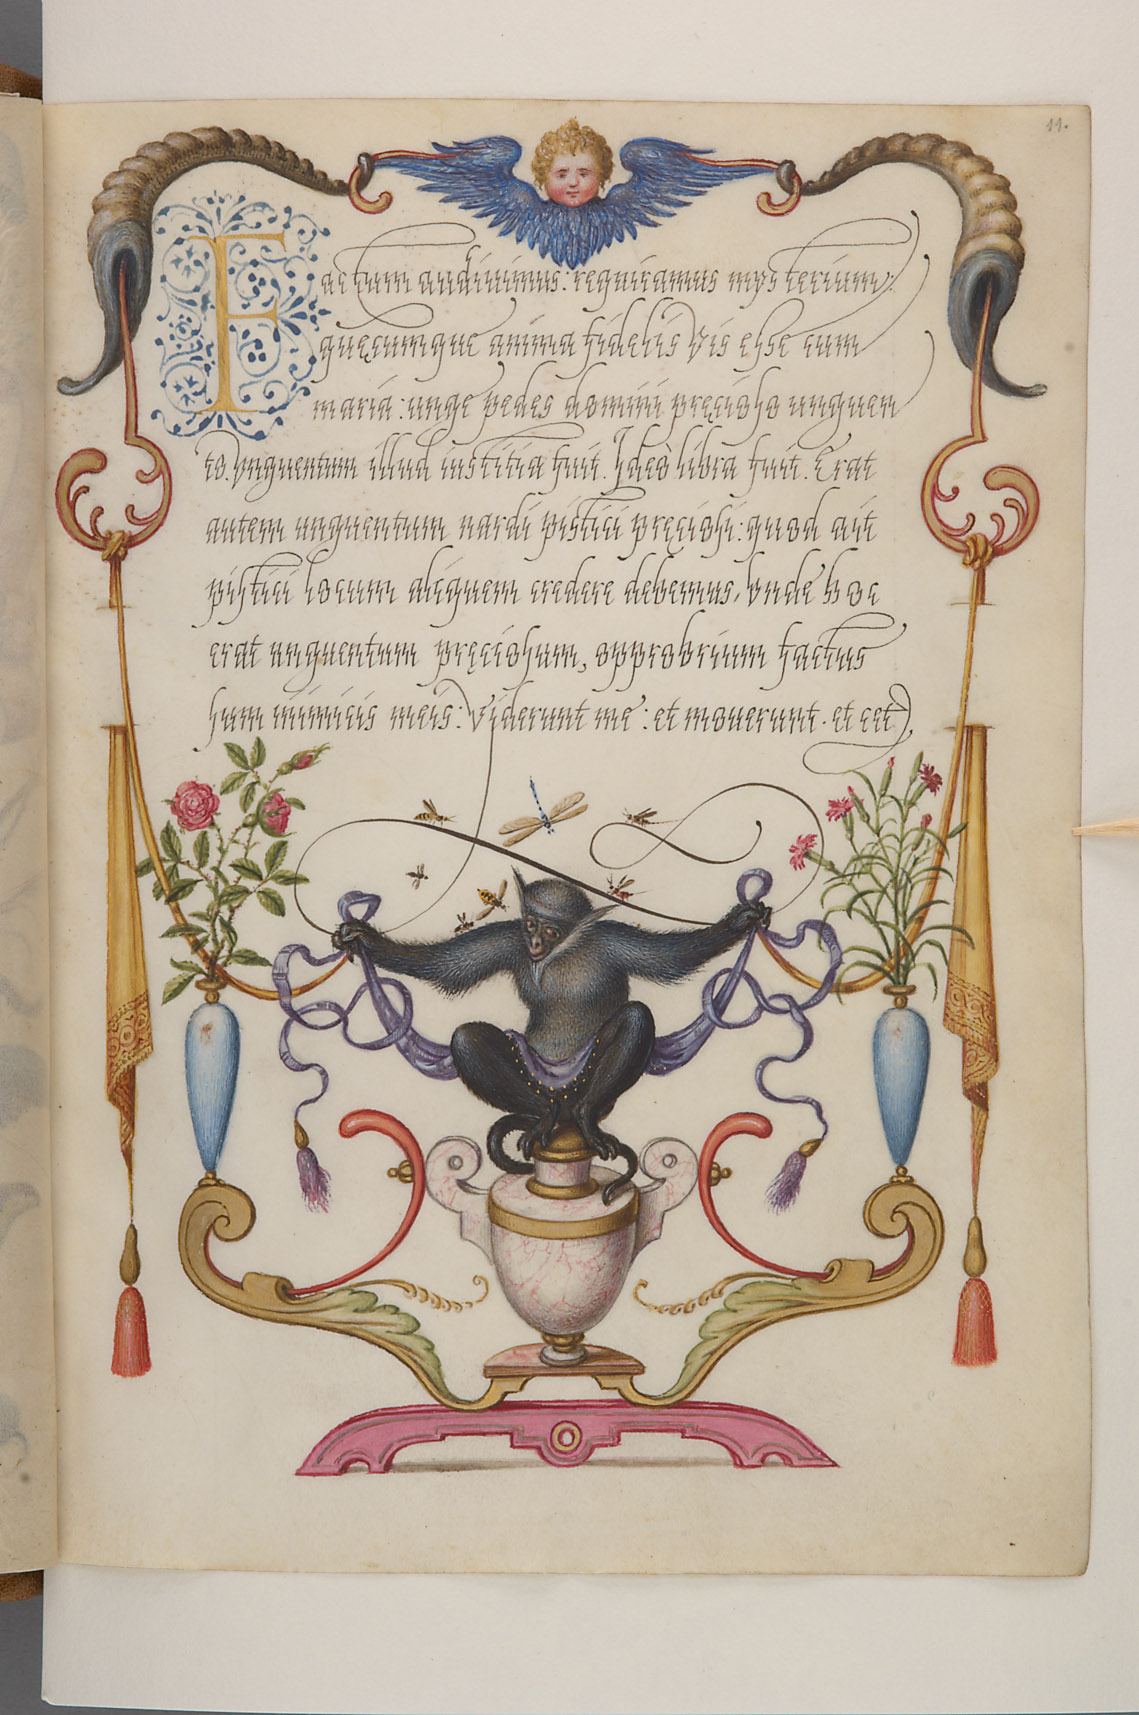 11.
Factum audiuimus: requiramus mysterium:
quęcumque anima fidelis vis esse cum
maria: unge pedes domini pręcioso unguen
to. Vnguentum illud iustitia fuit. Ideò libra fuit. Erat
autem unguentum nardi pistici pręciosi: quod ait
pistici locum aliquem credere debemus, vnde hoc
erat unguentum pręciosum, opprobrium factus
sum inimicis meis: viderunt me: et mouerunt. et cet)